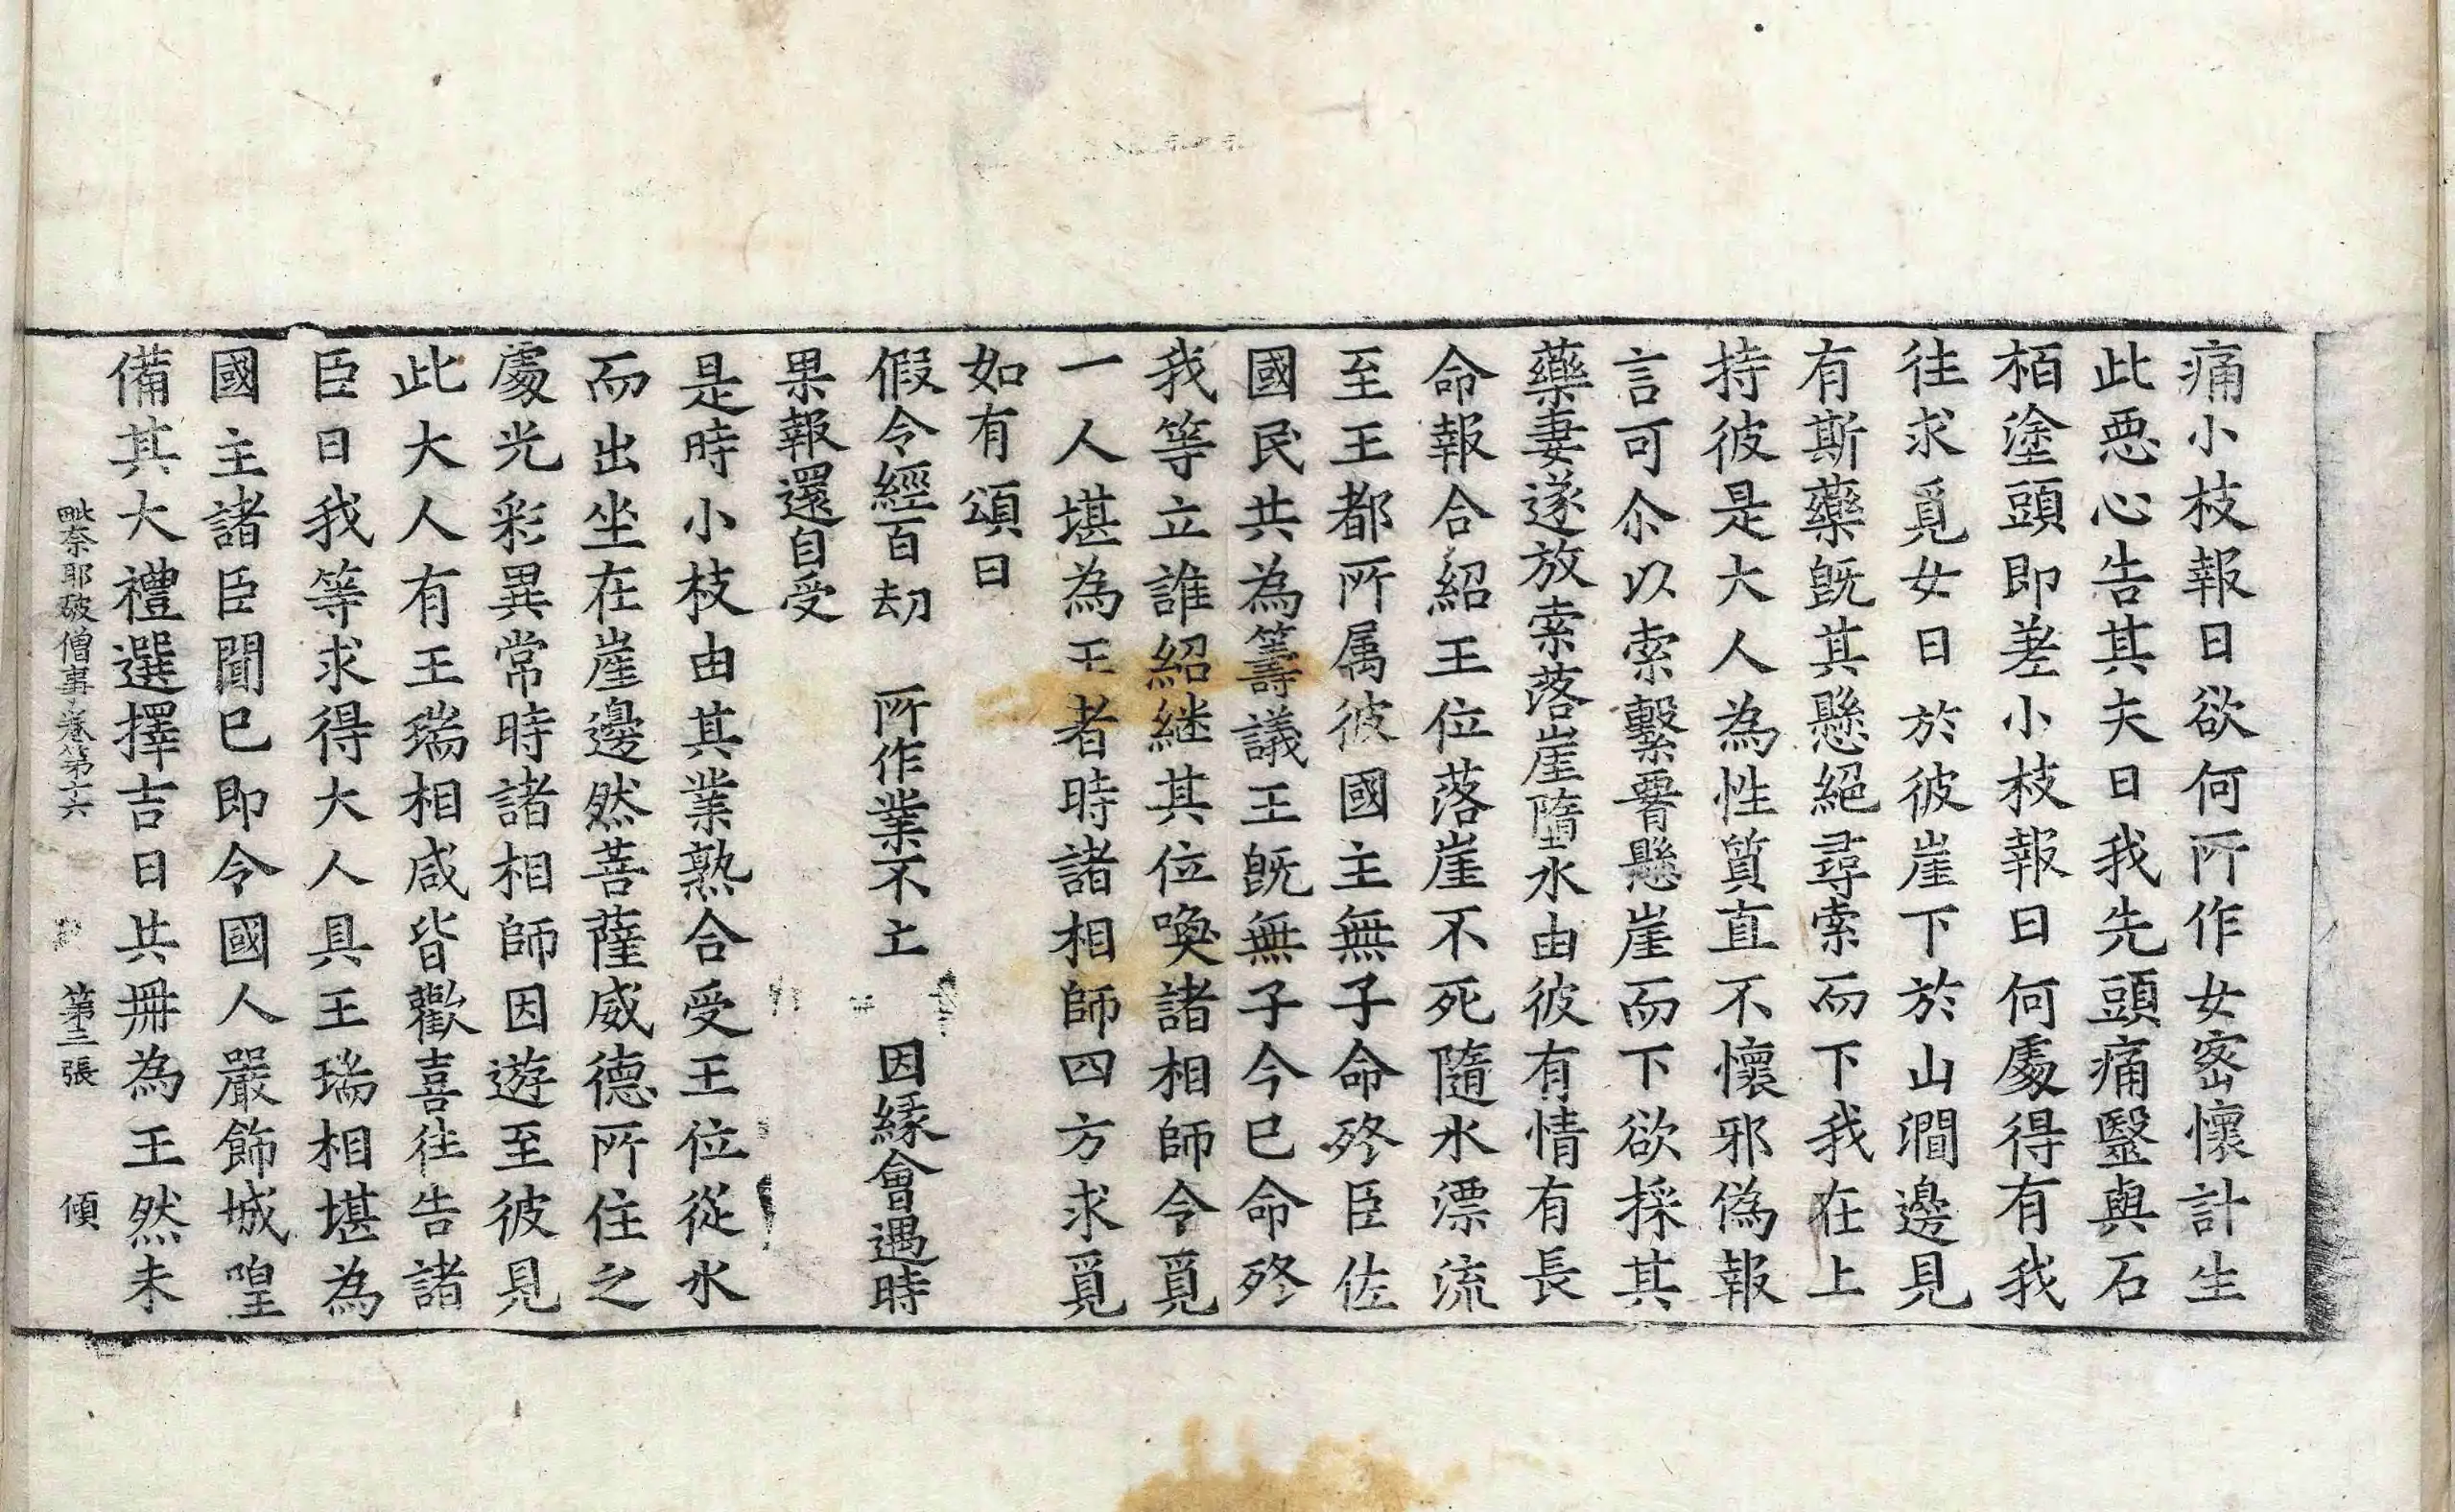 痛小枝報曰欲何所作女密懷計生
此惡心告其夫曰我先頭痛醫與石
栢塗頭即差小枝報曰何處得有我
往求覓女曰於彼崖下於山澗邊見
有斯藥旣其懸絕尋索而下我在上
持彼是大人為性質直不懷邪偽報
言可尒以索繫䏿懸崖而下欲採其
藥妻遂放索落崖墮水由彼有情有長
命報合紹王位落崖不死隨水漂流
至王都所属彼國主無子命終臣佐
國民共為籌議王旣無子今已命終
我等立誰紹継其位喚諸相師令覓
一人堪為王者時諸相師四方求覓
如有頌曰
假令經百劫　所作業不亡　因緣會遇時
果報還自受
是時小枝由其業熟合受王位從水
而出坐在崖邊然菩薩威德所住之
處光彩異常時諸相師因遊至彼見
此大人有王瑞相咸皆歡喜往告諸
臣曰我等求得大人具王瑞相堪為
國主諸臣聞已即令國人嚴飾城隍
備其大禮選擇吉日共冊為王然未
毗奈耶破僧事卷第十六　第三張　傾